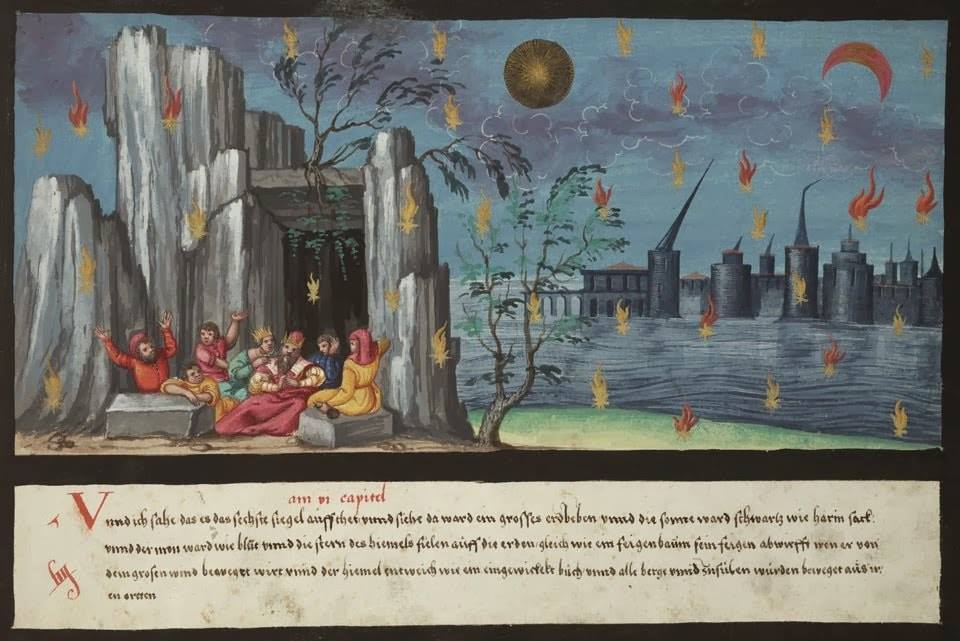 am vi capitel
Vnnd ich sahe das es das sechste siegel auffthet vnnd siehe da ward ein grosses erdbeben vnnd die sonne ward schwartz wie harin sack
vnnd der mon ward wie blůt vnnd die stern des hiemels fielen auff die erden gleich wie ein feigenbaům sein feigen abwirfft wen er von
dem grosen wind beweget wirt vnnd der hiemel entweich wie ein eingewickelt bůch vnnd alle berge vnnd Jnsůlen würden beweget aůs ir
en orten